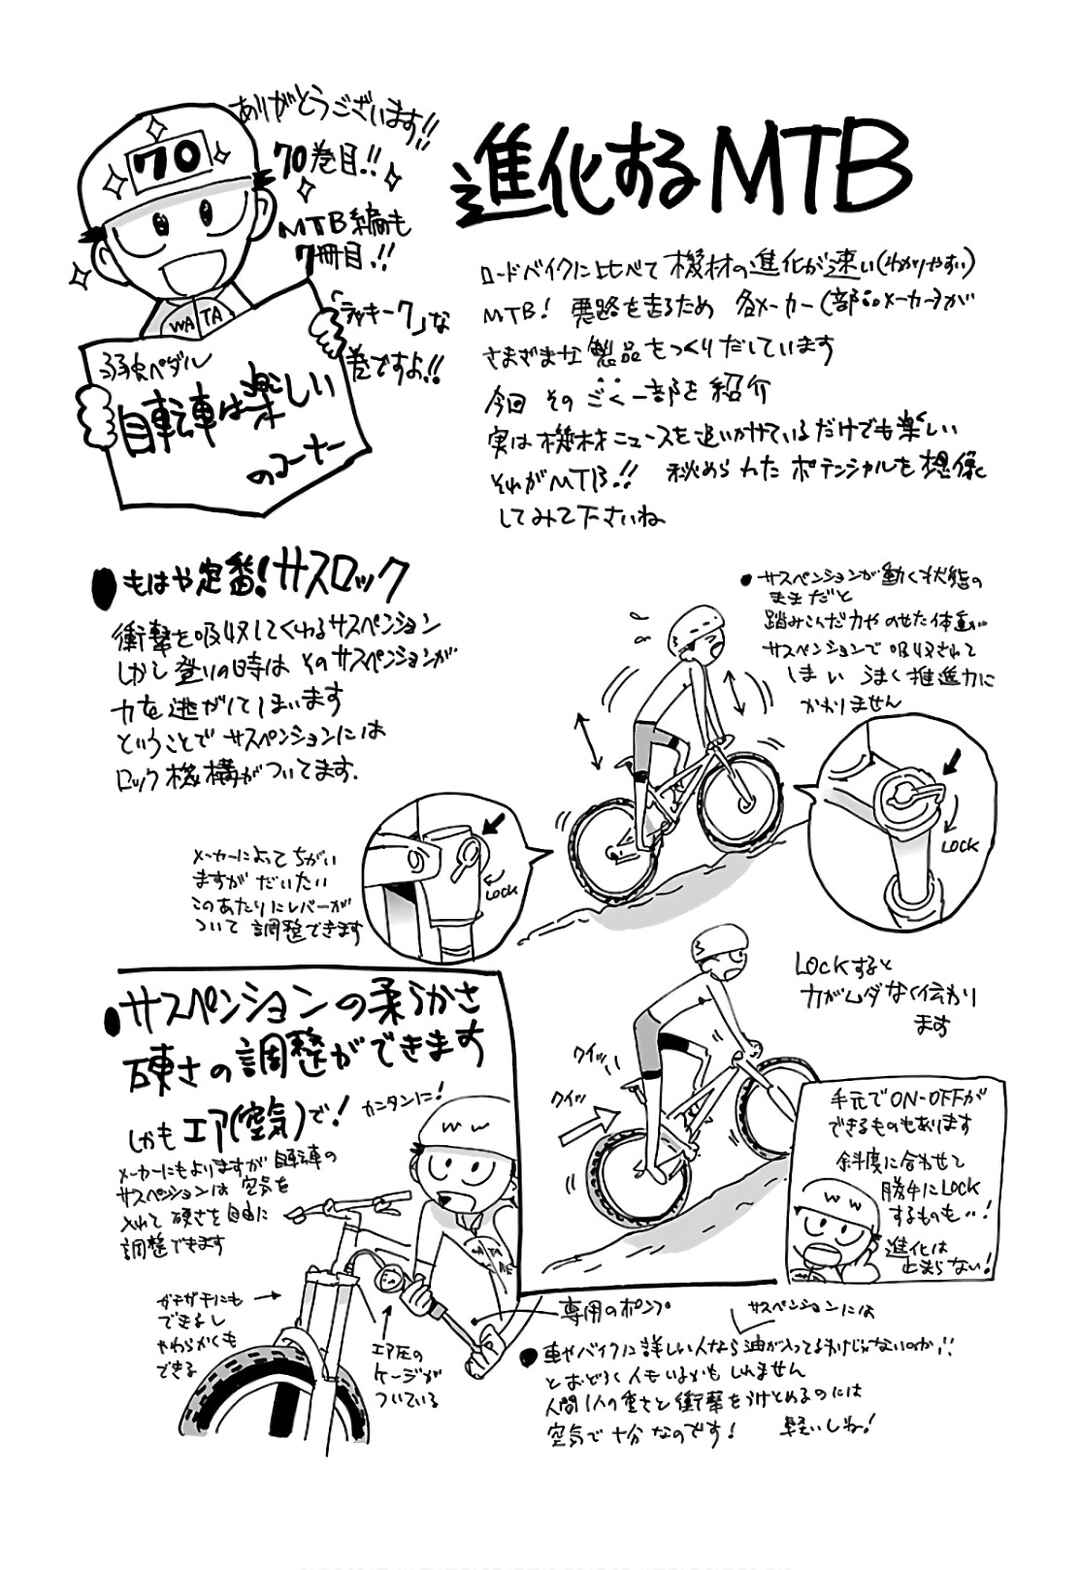 ありがとうございます!!
70巻目!!
MTB編も
7冊目!!
「ラッキー7」な
巻ですよ!!
70
WATA
弱虫ペダル
自転車は楽しい
のコーナー
進化するMTB
ロードバイクに比べて機材の進化が速い(わかりやすい)
MTB! 悪路を走るため 各メーカー(部品メーカー)が
さまざまな製品をつくりだしています
今回 その ごく一部を紹介
実は機材ニュースを追いかけているだけでも楽しい
それがMTB!! 秘められたポテンシャルを想像
してみて下さいね
●もはや定番!サスロック
衝撃を吸収してくれるサスペンション
しかし登りの時は そのサスペンションが
力を逃がしてしまいます
ということで サスペンションには
ロック機構がついてます.
●サスペンションが動く状態の
ままだと
踏みこんだ力や のせた体重が
サスペンションで 吸収されて
しまい うまく推進力に
かわりません
LOCK
メーカーによって ちがい
ますが だいたい
このあたりにレバーが
ついて 調整できます
LOCK
LOCKすると
力がムダなく伝わり
ます
クイッ
クイッ
手元でON-OFFが
できるものもあります
斜度に合わせて
勝手にLOCK
するものも…!
進化は
止まらない!
●サスペンションの柔らかさ
硬さの調整ができます
しかも エア(空気)で!
カンタンに!
メーカーにもよりますが 自転車の
サスペンションは 空気を
入れて 硬さを自由に
調整できます
ガチガチにも
できるし
やわらかくも
できる
エア圧の
ゲージが
ついている
専用のポンプ
サスペンションには
●車やバイクに詳しい人なら油が入ってるわけじゃないのか!!
とおどろく人もいるかもしれません
人間1人の重さと衝撃をうけとめるのには
空気で十分なのです! 軽いしね!